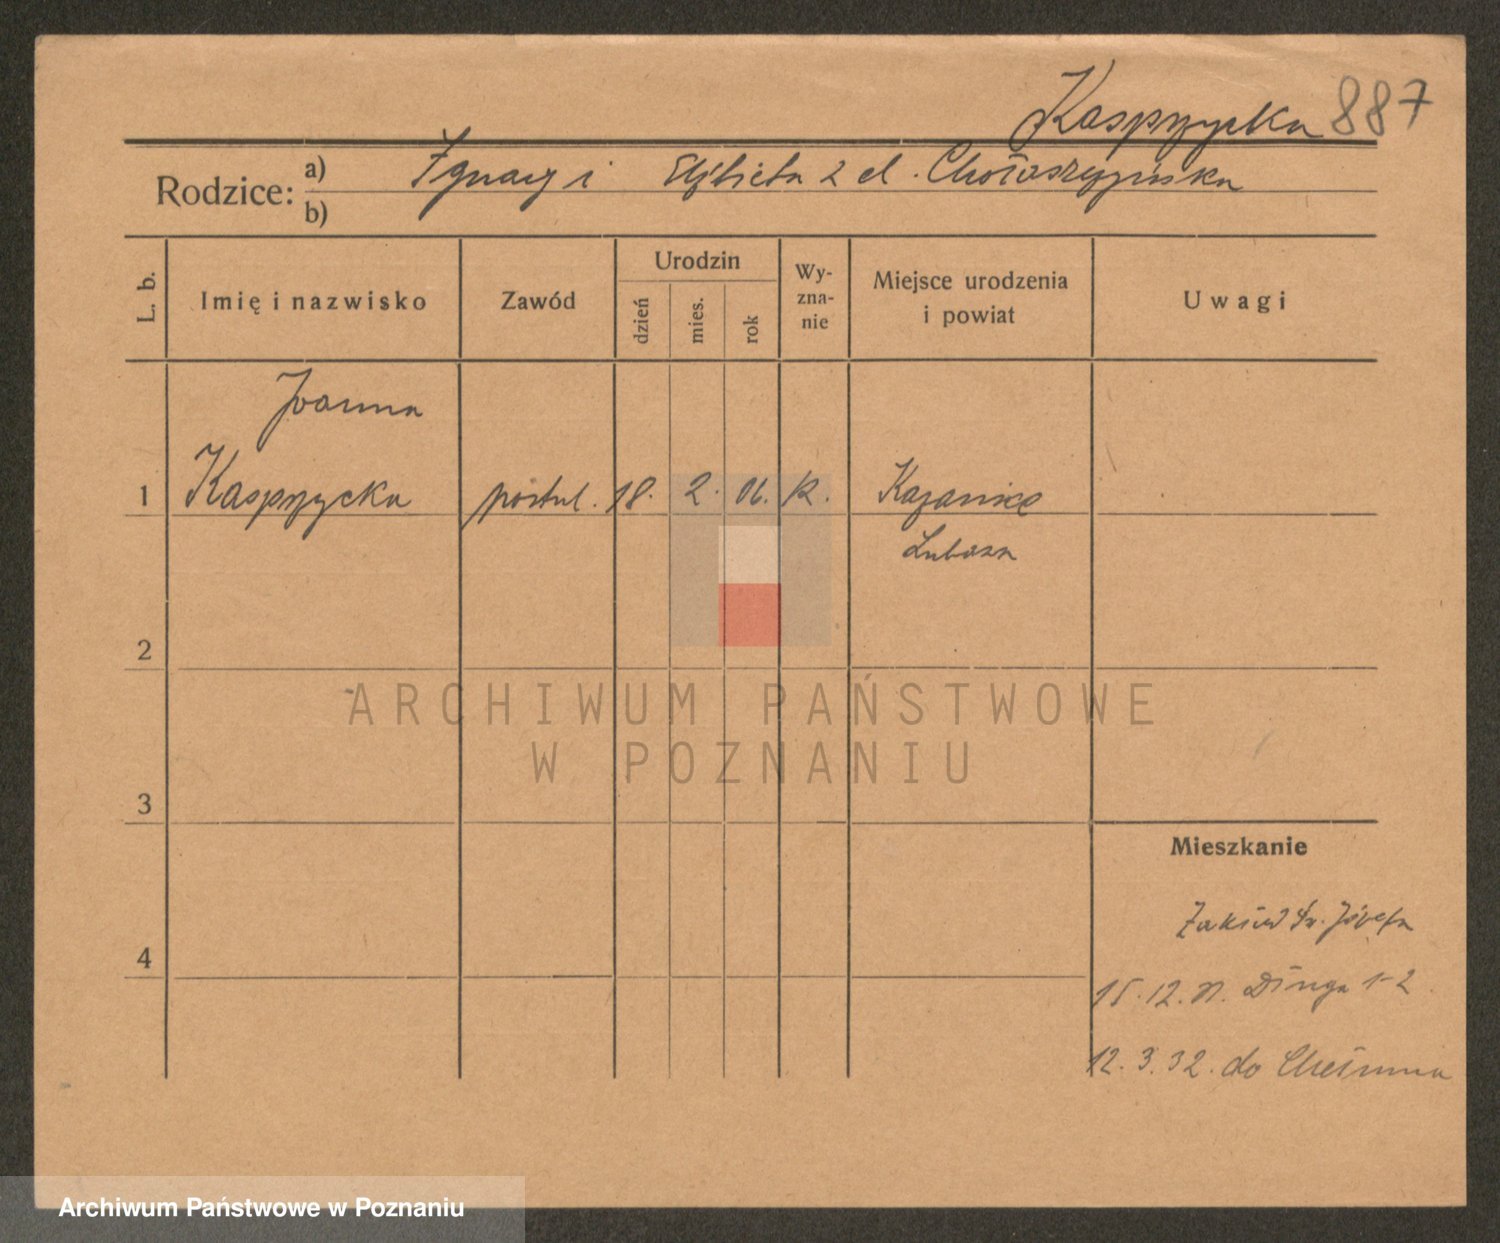 Kasprzycka 887
Rodzice: a) Ignacy i Elżbieta z d. Chołaszczyńska
b)
L. b.
Imię i nazwisko
Zawód
Urodzin
dzień
mies.
rok
Wy-
zna-
nie
Miejsce urodzenia
i powiat
Uwagi
Joanna
1 Kasprzycka postul. 18. 2. 06. k.
Lubasz
2
3
4
Mieszkanie
Zakład św. Józefa
15.12. Długa 1-2
12.3.32. do Chełmna
ARCHIWUM PAŃSTWOWE
W POZNANIU
Archiwum Państwowe w Poznaniu